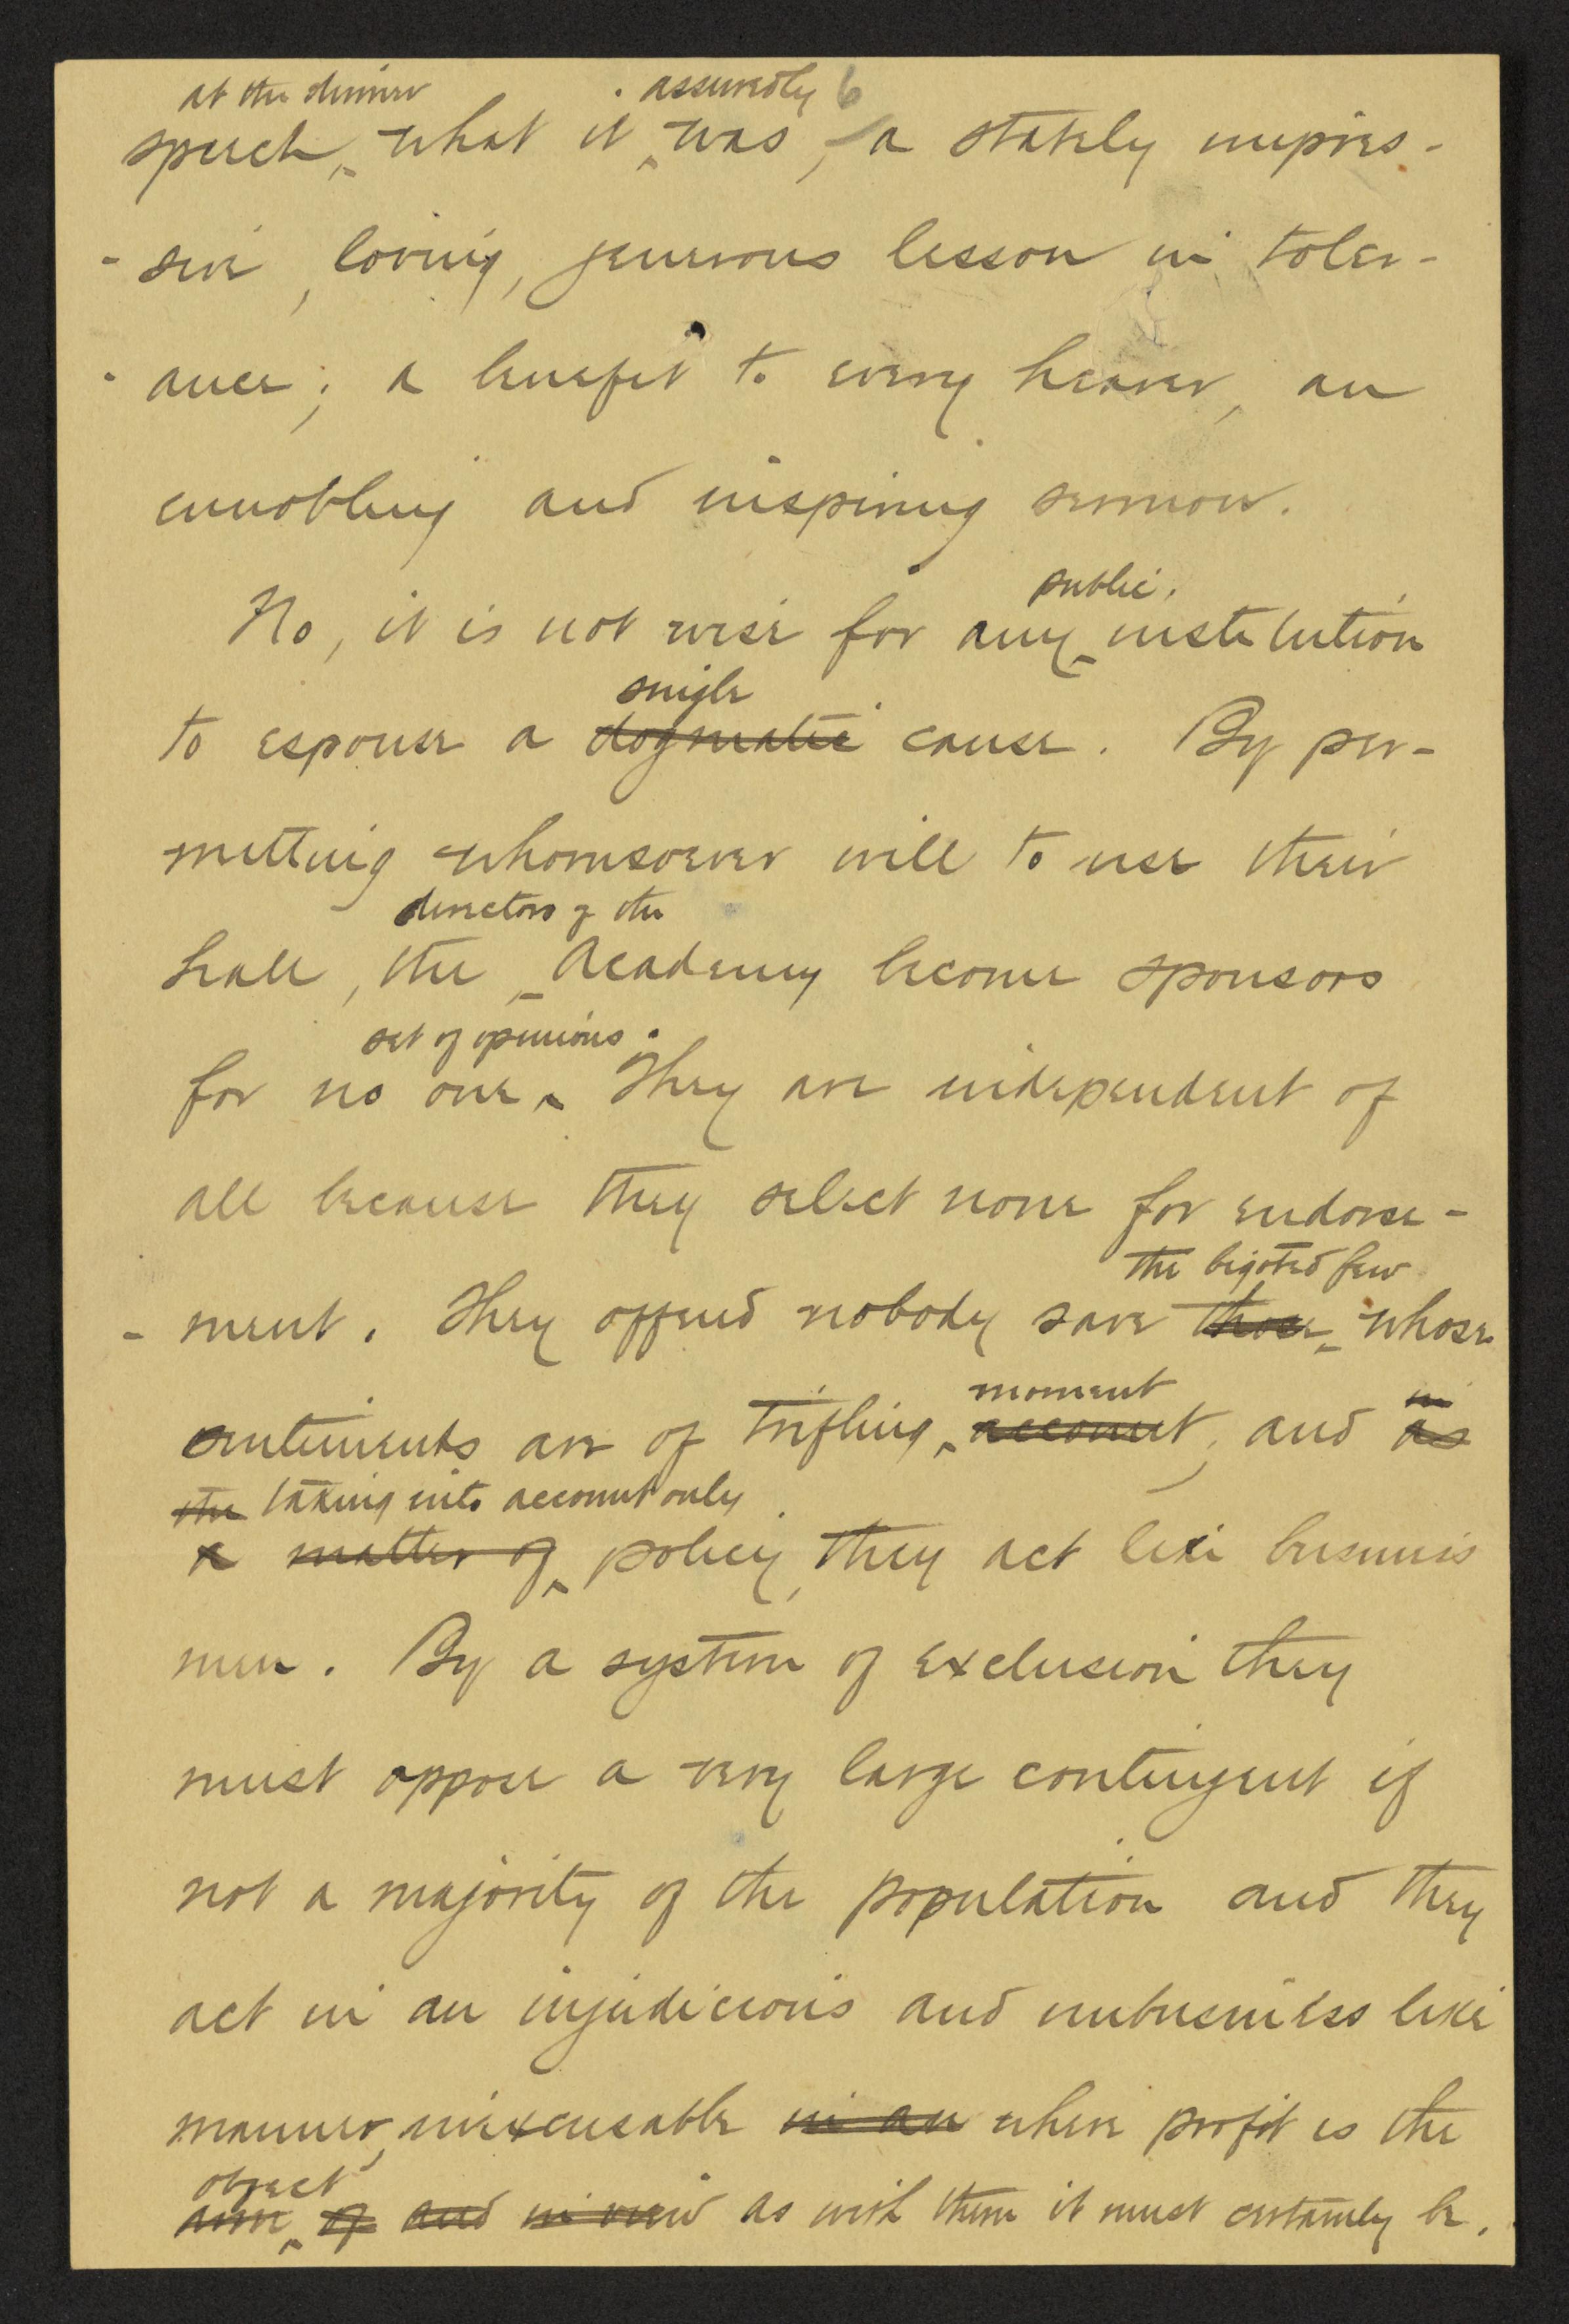 at the dinner assuredly 6
speech, what it was, a stately impres-
- sive, loving, generous lesson in toler-
- ance; a benefit to every hearer, an
ennobling and inspiring sermon.
public
No, it is not wise for any institution
single
to espouse a dogmatic cause. By per-
mitting whomsoever will to use their
directors of the
hall, the Academy become sponsors
set of opinions.
for no one They are independent of
all because they select none for endorse-
the bigoted few
- ment. They offend nobody save those whose
moment in
sentiments are of trifling account, and as
the taking into account only
a matter of policy, they act like business
men. By a system of exclusion they
must oppose a very large contingent if
not a majority of the population and they
act in an injudicious and unbusiness like
manner, inexcusable in an where profit is the
object
aim of and in view as with them it must certainly be.